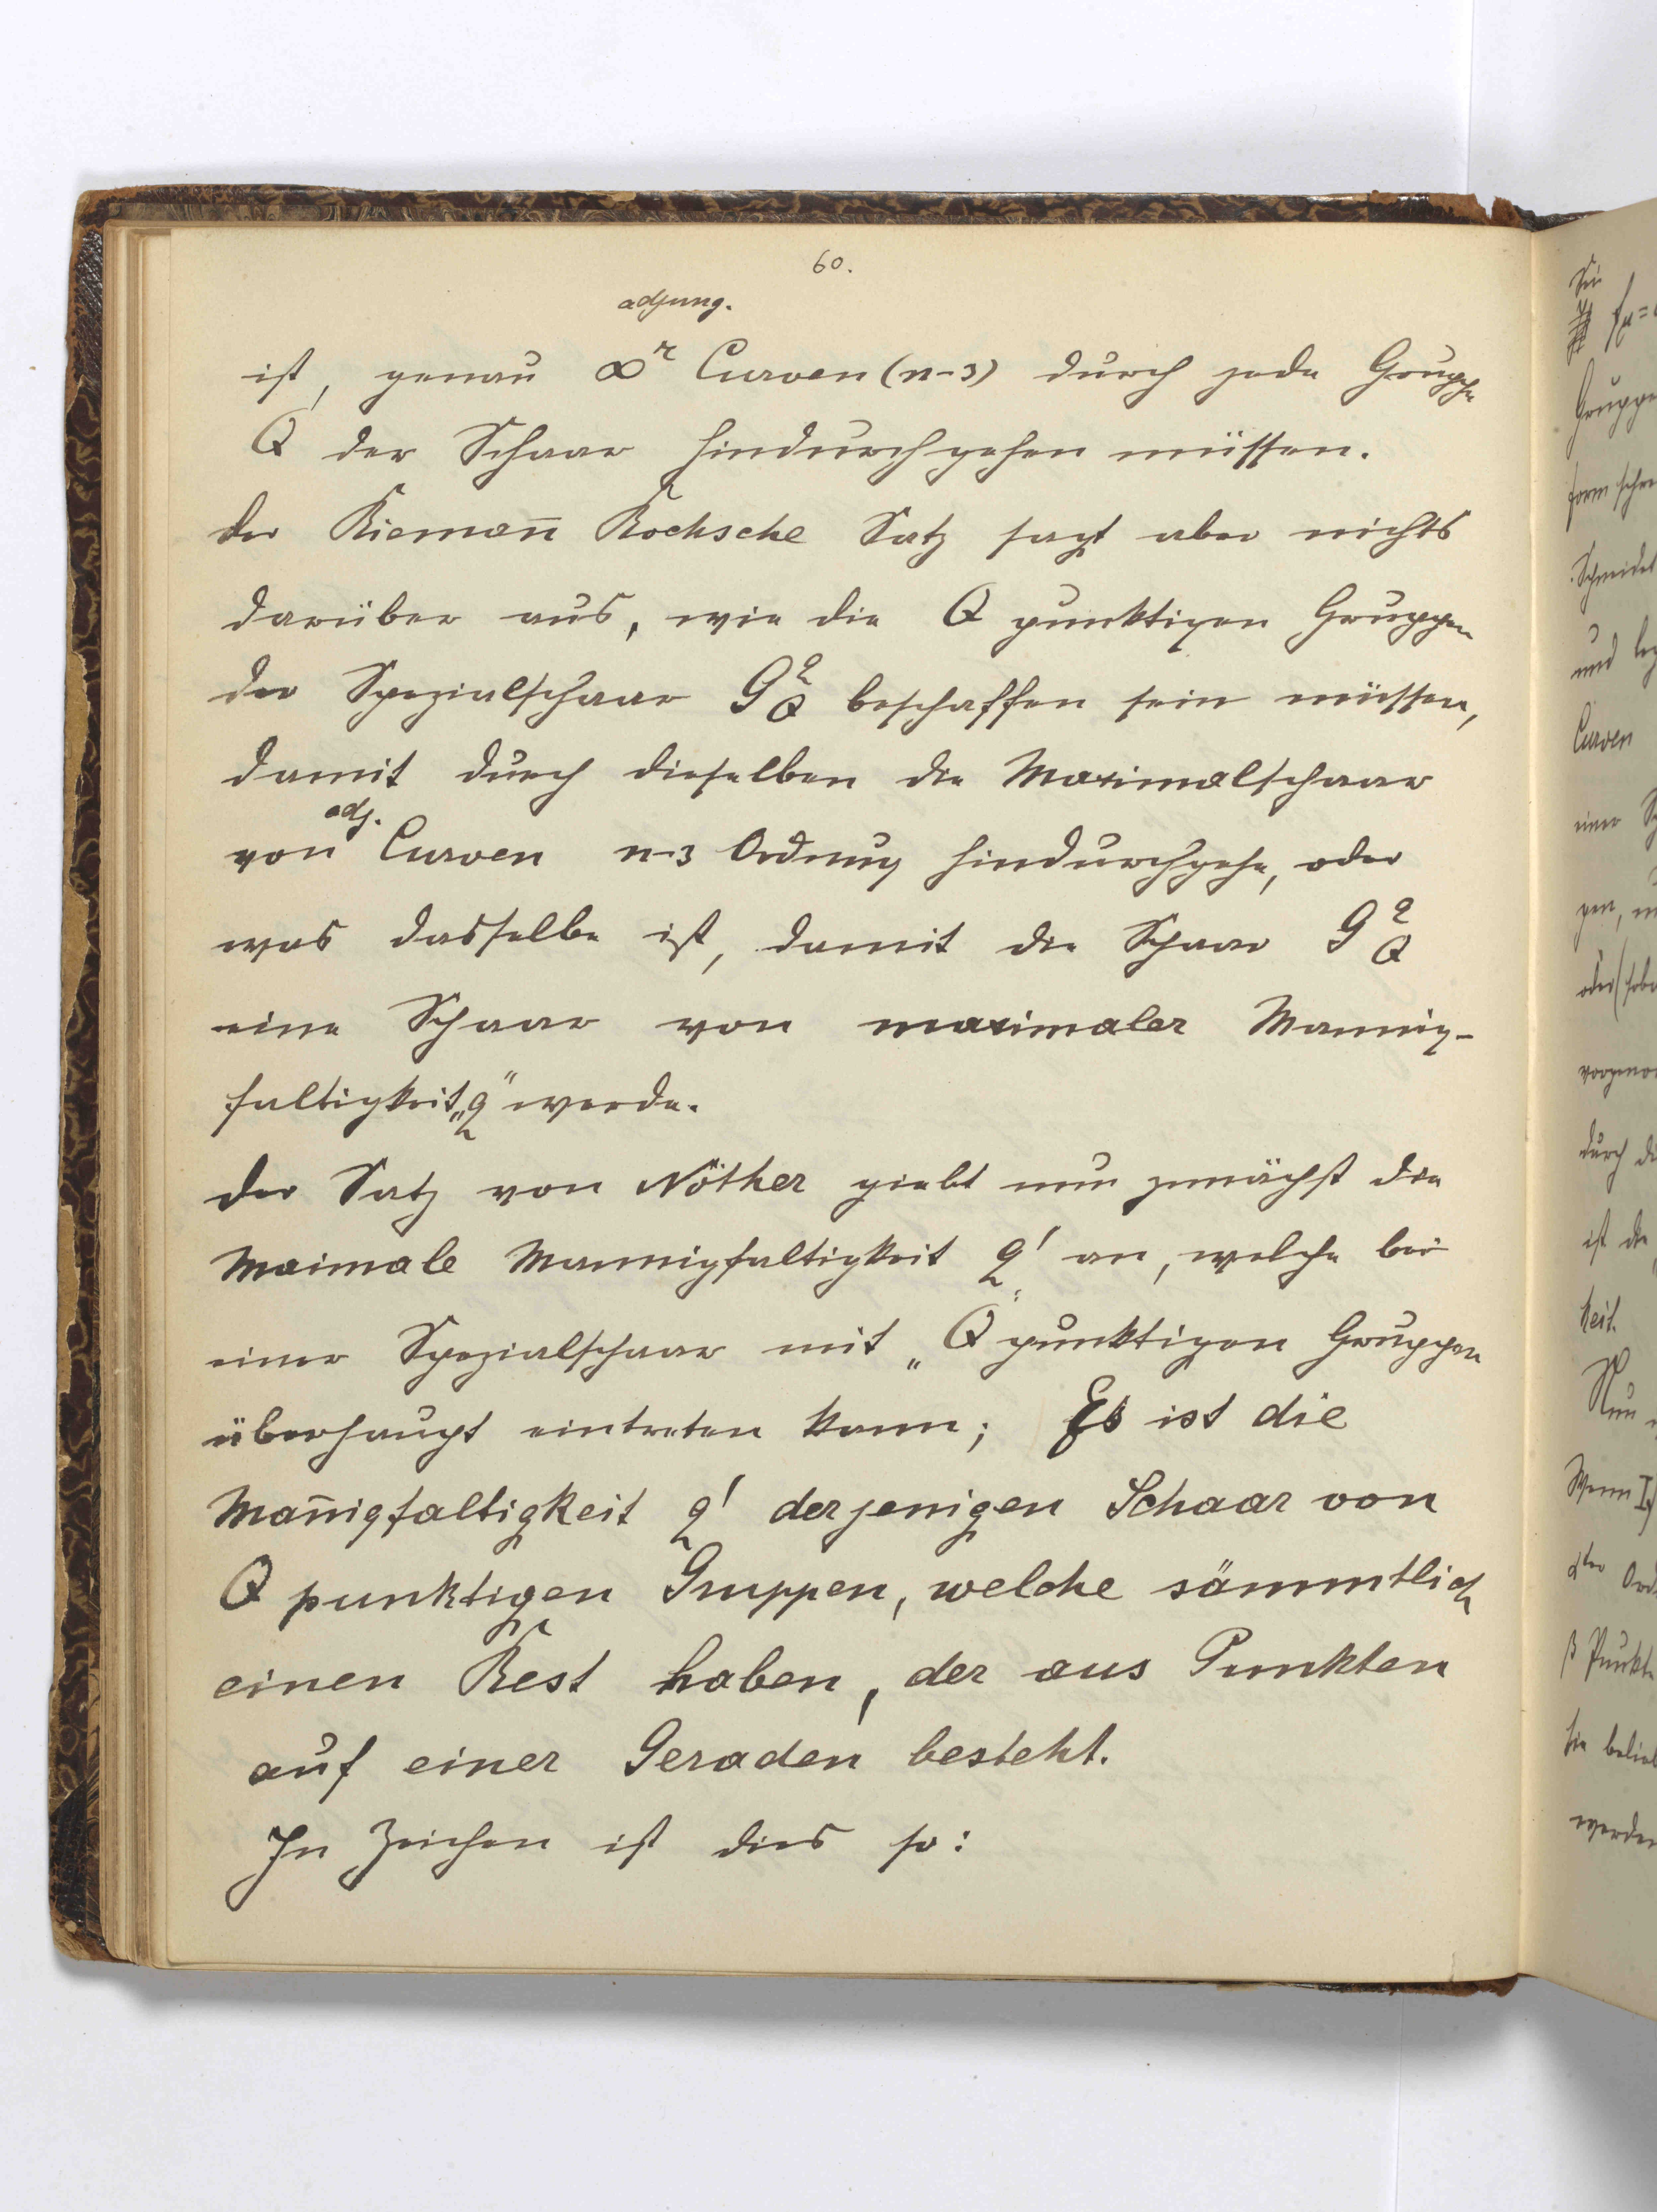 60.
adjung.
ist, genau ∞^r Curven (n-3) durch jede Gruppe
Q der Schaar hindurchgehen müssen.
der Riemañ Rochsche Satz sagt aber nichts
darüber aus, wie die Q punktigen Gruppen
der Spezialschaar G_Q^q beschaffen sein müssen,
damit durch dieselben die Maximalschaar
adj.
von Curven n-3 Ordnung hindurchgehe, oder
was dasselbe ist, damit die Schaar G_Q^q
eine Schaar von maximaler Mannig-
faltigkeit „q“ werde.
der Satz von Nöther giebt nun zunächst die
Maximale Mannigfaltigkeit q' an, welche bei
einer Spezialschaar mit „Q“ punktigen Gruppen
überhaupt eintreten kann; Es ist die
Mañigfaltigkeit q' derjenigen Schaar von
Q punktigen Gruppen, welche sämmtlich
einen Rest haben, der aus Punkten
auf einer Geraden besteht.
In Zeichen ist dies so:
Gruppe
Curven
oder
durch
ist die
keit.
Nun
Wenn I)
β Punkte